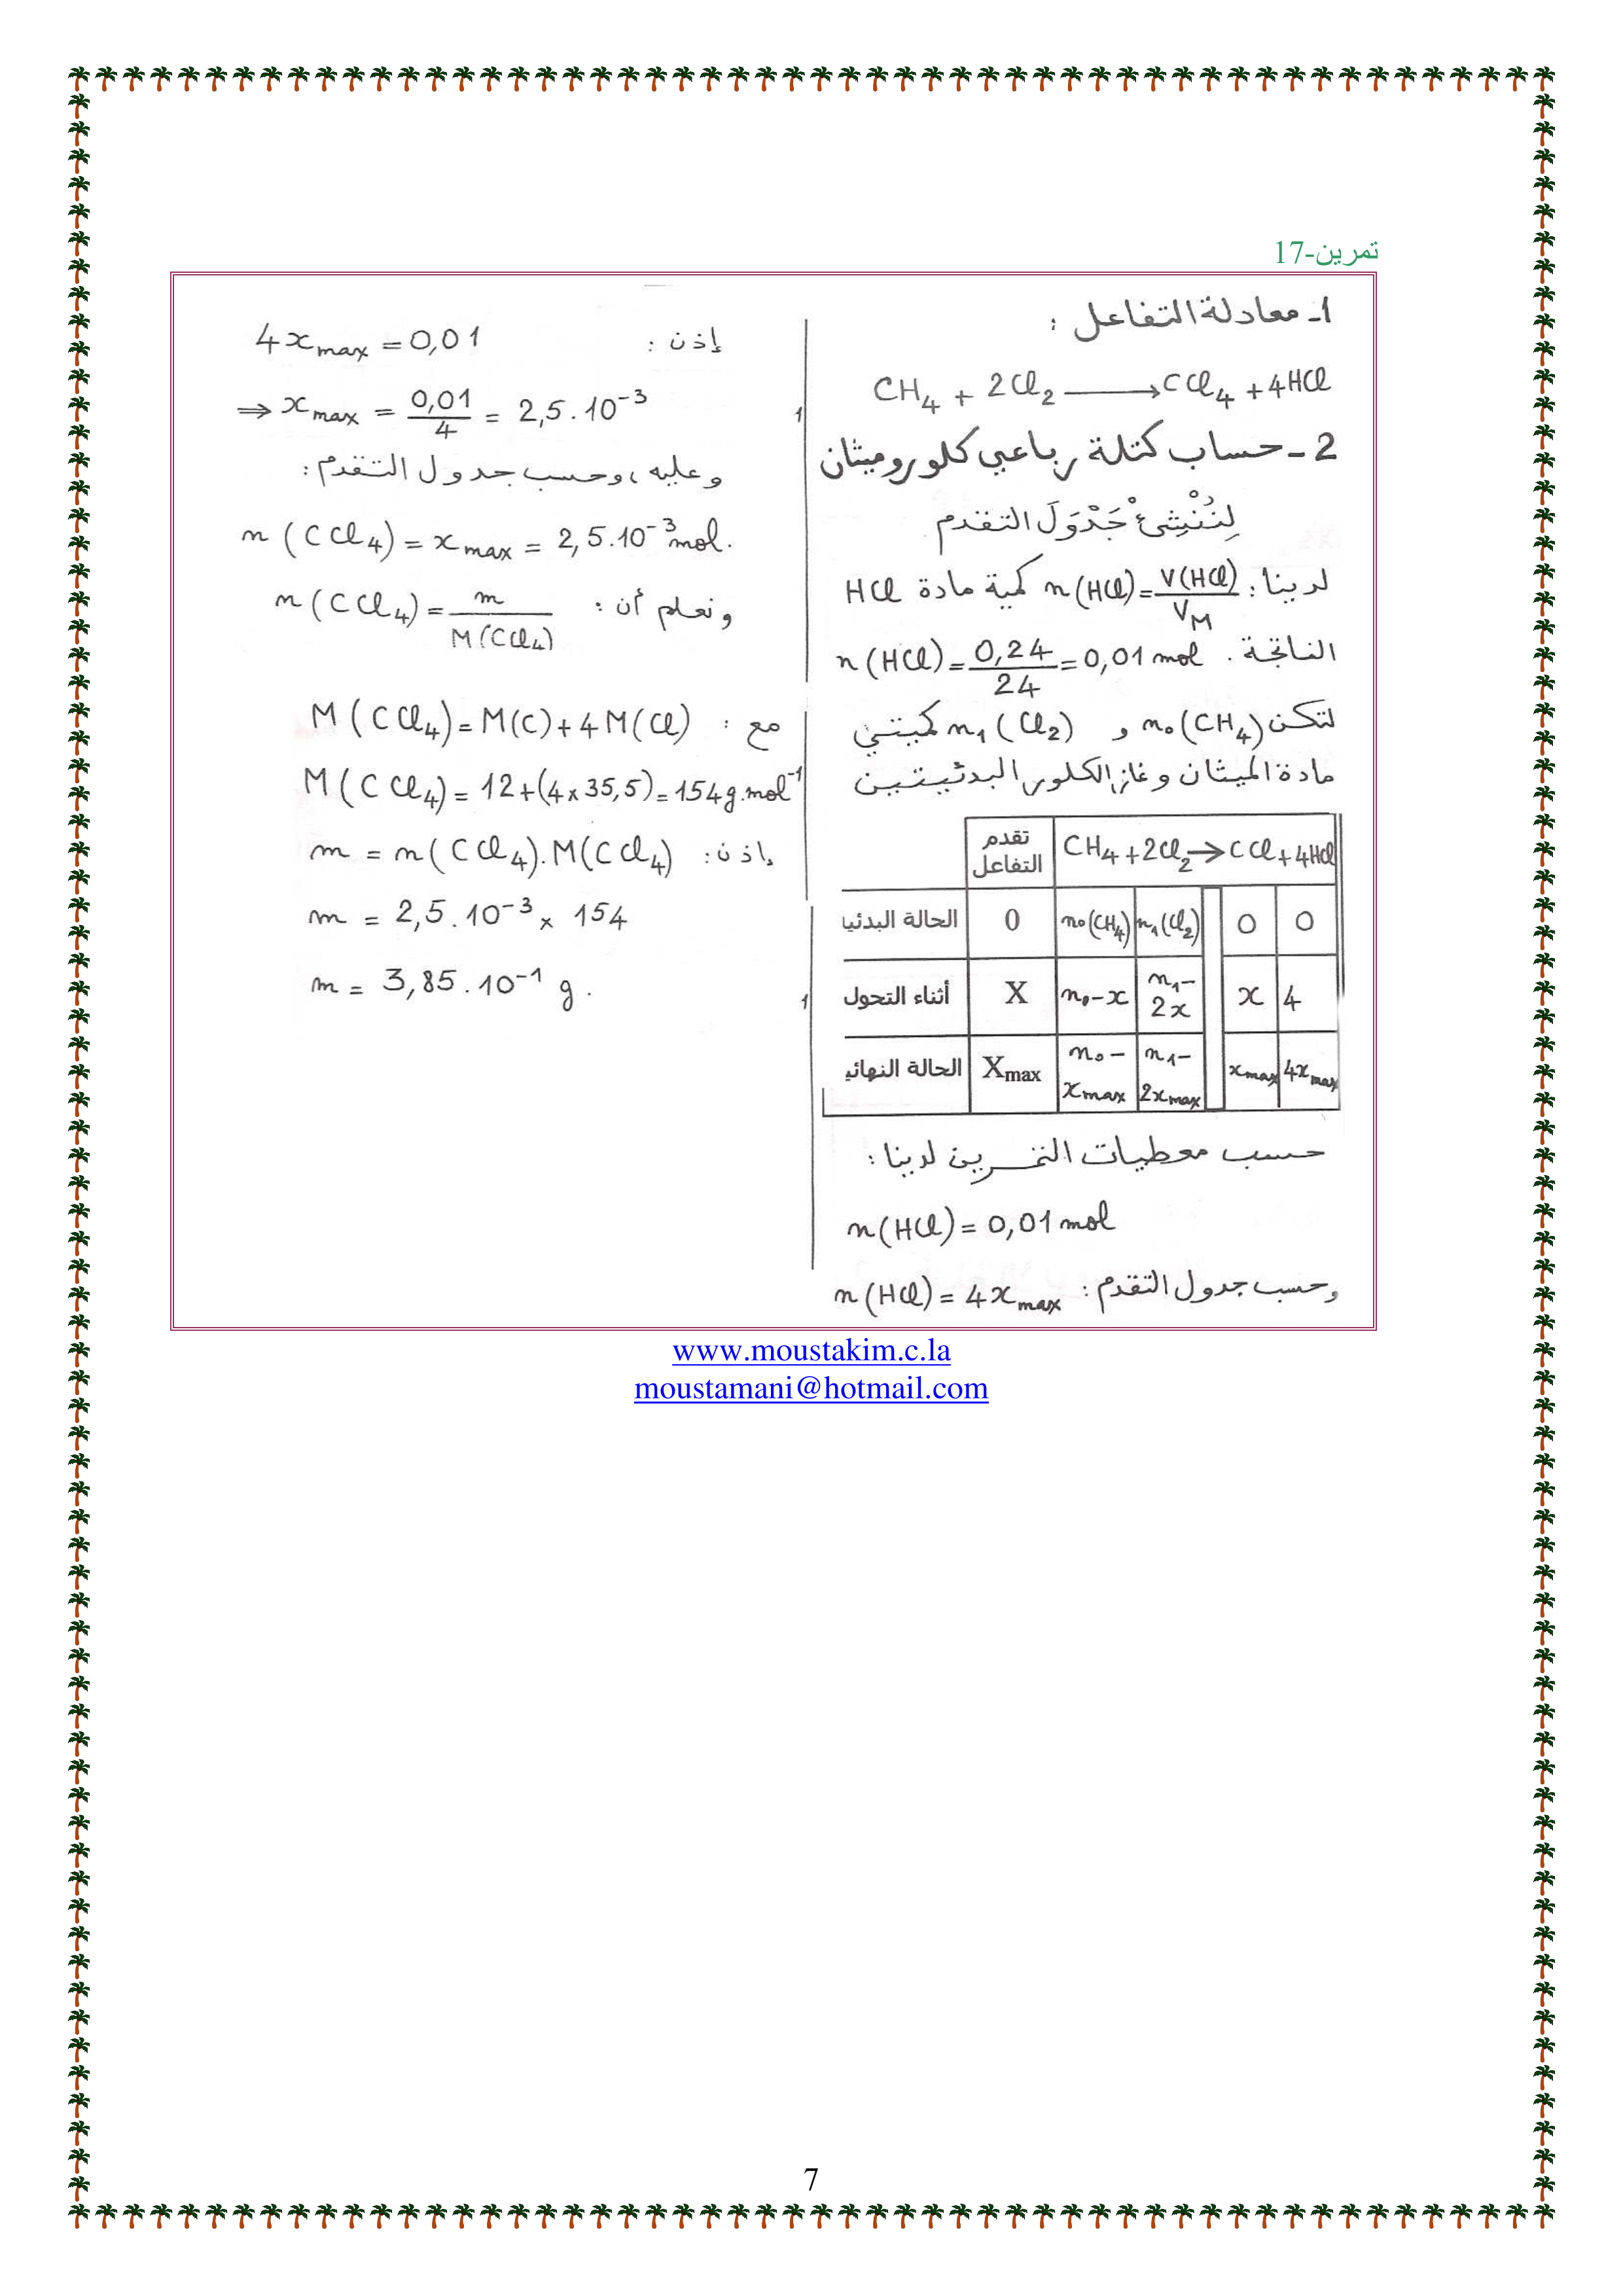 تمرين-17
1- معادلة التفاعل :
CH₄ + 2Cl₂ ⟶ CCl₄ + 4HCl
2 - حساب كتلة رباعي كلوروميثان
لِنُنْشِئْ جَدْوَلَ التقدم
لدينا : n(HCl) = V(HCl)/V_M كمية مادة HCl
الناتجة . n(HCl) = 0,24/24 = 0,01 mol
لتكن n₀(CH₄) و n₁(Cl₂) كميتي
مادة الميثان وغاز الكلور البدئيتين
تقدم التفاعل CH₄ + 2Cl₂ → CCl + 4HCl
الحالة البدئيا 0 n₀(CH₄) n₁(Cl₂) 0 0
أثناء التحول X n₀-x n₁-2x x 4
الحالة النهائي X_max n₀-x_max n₁-2x_max x_max 4x_max
حسب معطيات التمرين لدينا :
n(HCl) = 0,01 mol
وحسب جدول التقدم : n(HCl) = 4x_max
إذن : 4x_max = 0,01
⇒ x_max = 0,01/4 = 2,5.10⁻³
1
وعليه ، وحسب جدول التقدم :
n(CCl₄) = x_max = 2,5.10⁻³ mol.
ونعلم أن : n(CCl₄) = m/M(CCl₄)
مع : M(CCl₄) = M(C) + 4M(Cl)
M(CCl₄) = 12 + (4x35,5) = 154 g.mol⁻¹
إذن : m = n(CCl₄).M(CCl₄)
m = 2,5.10⁻³ x 154
m = 3,85.10⁻¹ g.
1
www.moustakim.c.la
moustamani@hotmail.com
7